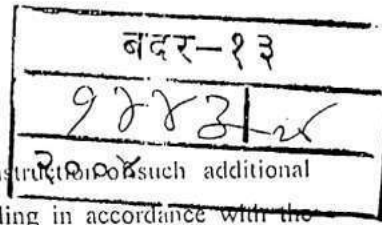 बदर-१३
२००४
struction of such additional
ding in accordance with the